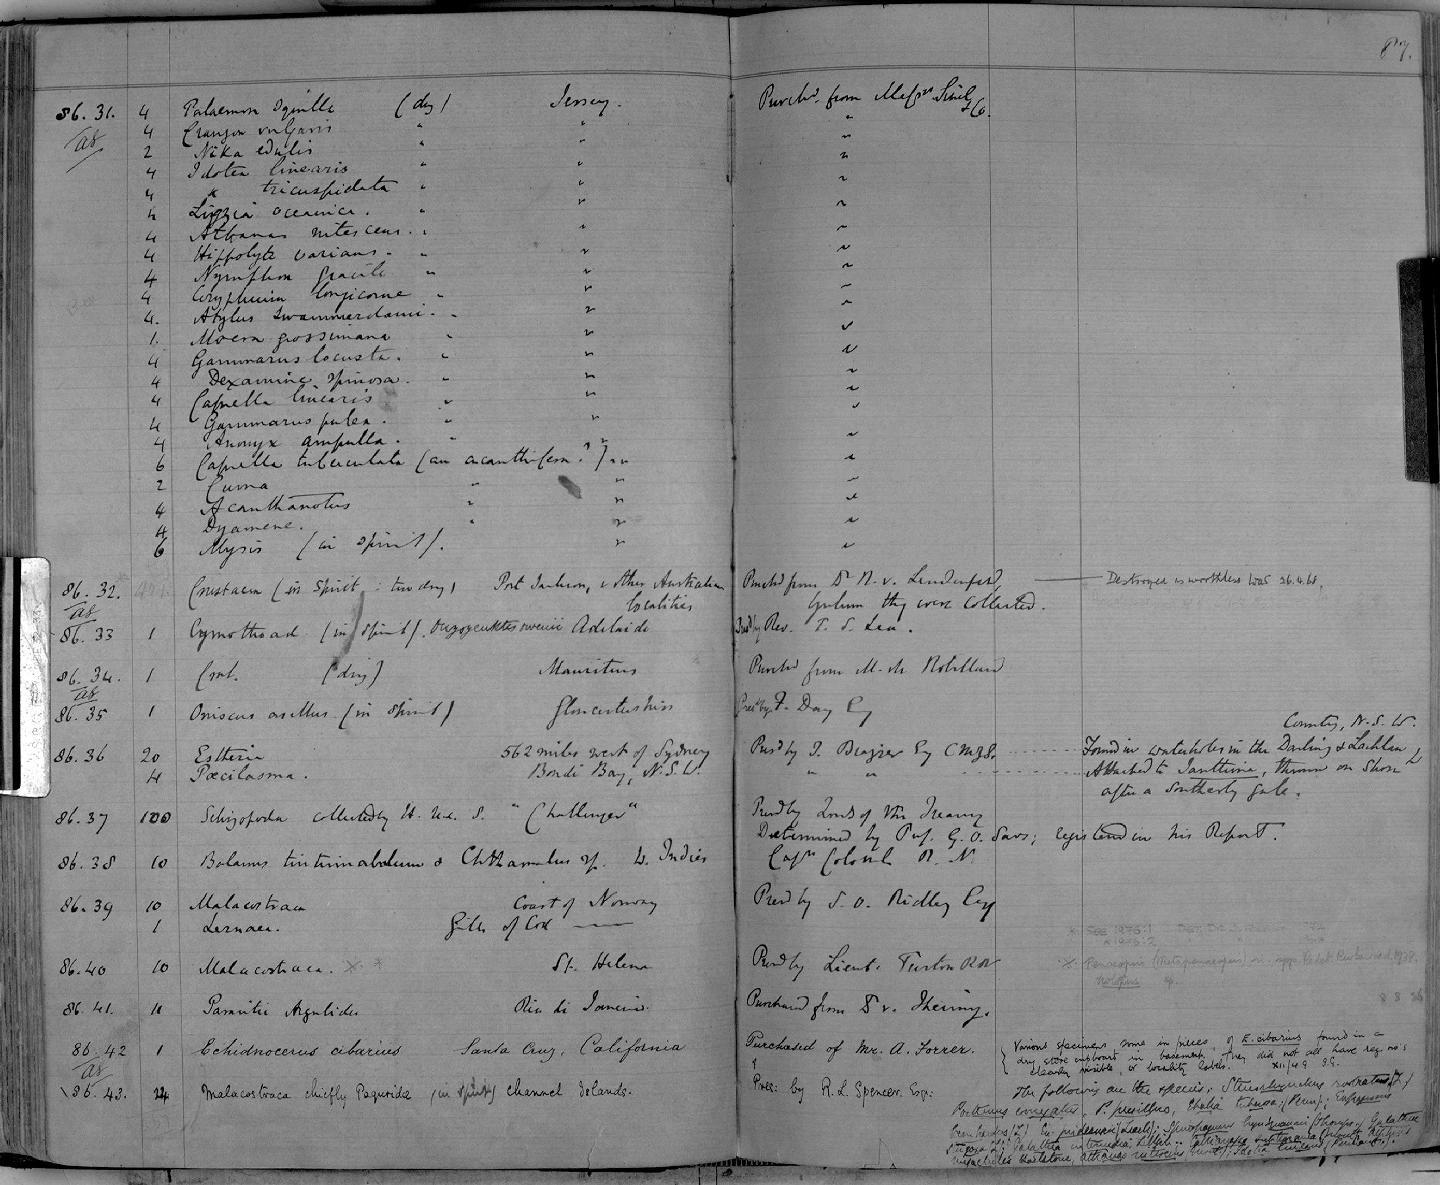 87.
86.31. 4 Palaemon Squilla (dry) Jersey. Purchd. from Messrs Sinel & Co.
as 4 Crangon vulgaris " " "
2 Nika edulis " " "
4 Idotea linearis " " "
4 " tricuspidata " " "
4 Ligia oceanica. " " "
4 Athanas nitescens. " " "
4 Hippolyte varians. " " "
4 Nymphon gracile " " "
4 Coryphium longicorne " " "
4. Atylus Swammerdami. " " "
1. Moera grossimana " " "
4 Gammarus locusta. " " "
4 Dexamine spinosa. " " "
4 Caprella linearis " " "
4 Gammarus pulex. " "
4 Anonyx ampulla. " " "
6 Caprella tuberculata (an acanthifera?) " " "
2 Cuma " " "
4 Acanthonotus " " "
4 Dynamene. " " "
6 Mysis (in spirit). " "
86.32. Crustacea (in Spirit: two dry) Port Jackson, & other Australian Purchd from Dr R. v. Lendenfeld, Destroyed as worthless 26.4.61.
as localities by whom they were collected.
86.33 1 Cymothoad (in spirit). Adelaide Presd by Rev. T. S. Lea.
86.34. 1 Crab. (dry) Mauritius Purchd from M. M. Robillard
as
86.35 1 Oniscus asellus (in spirit) Gloucestershire Presd by F. Day Esq
Country, N.S.W.
86.36 20 Estheria 562 miles west of Sydney Presd by J. Brazier Esq CMZS. Found in waterholes in the Darling & Lachlan
4 Pœcilasma. Bondi Bay, N.S.W. " " Attached to Ianthina, thrown on Shore
after a Southerly gale.
86.37 100 Schizopoda collected by H.M.S. "Challenger" Presd by Lords of the Treasury
Determined by Prof. G. O. Sars; registered in his Report.
86.38 10 Balanus tintinnabulum & Chthamalus sp. W. Indies Captn Colomb R.N.
86.39 10 Malacostraca Coast of Norway Presd by S. O. Ridley Esq
1 Lernaea. Gills of Cod
86.40 10 Malacostraca. St. Helena Presd by Lieut. Turton RN
86.41. 11 Parasitic Argulidae Rio de Janeiro. Purchased from Dr v. Ihering.
86.42 1 Echidnocerus cibarius Santa Cruz, California Purchased of Mr. A. Forrer. Various specimens, some in pieces, of E. cibarius found in a
as dry store cupboard in basement, they did not all have reg. no's
clearly visible, or locality labels. XII/49 I.G.
86.43. 24 Malacostraca chiefly Paguridae (in spirit) Channel Islands. Pres: by R. L. Spencer. Esq: The following are the species:
Portunus corrugatus, P. pusillus, Ebalia tuberosa (Penn);